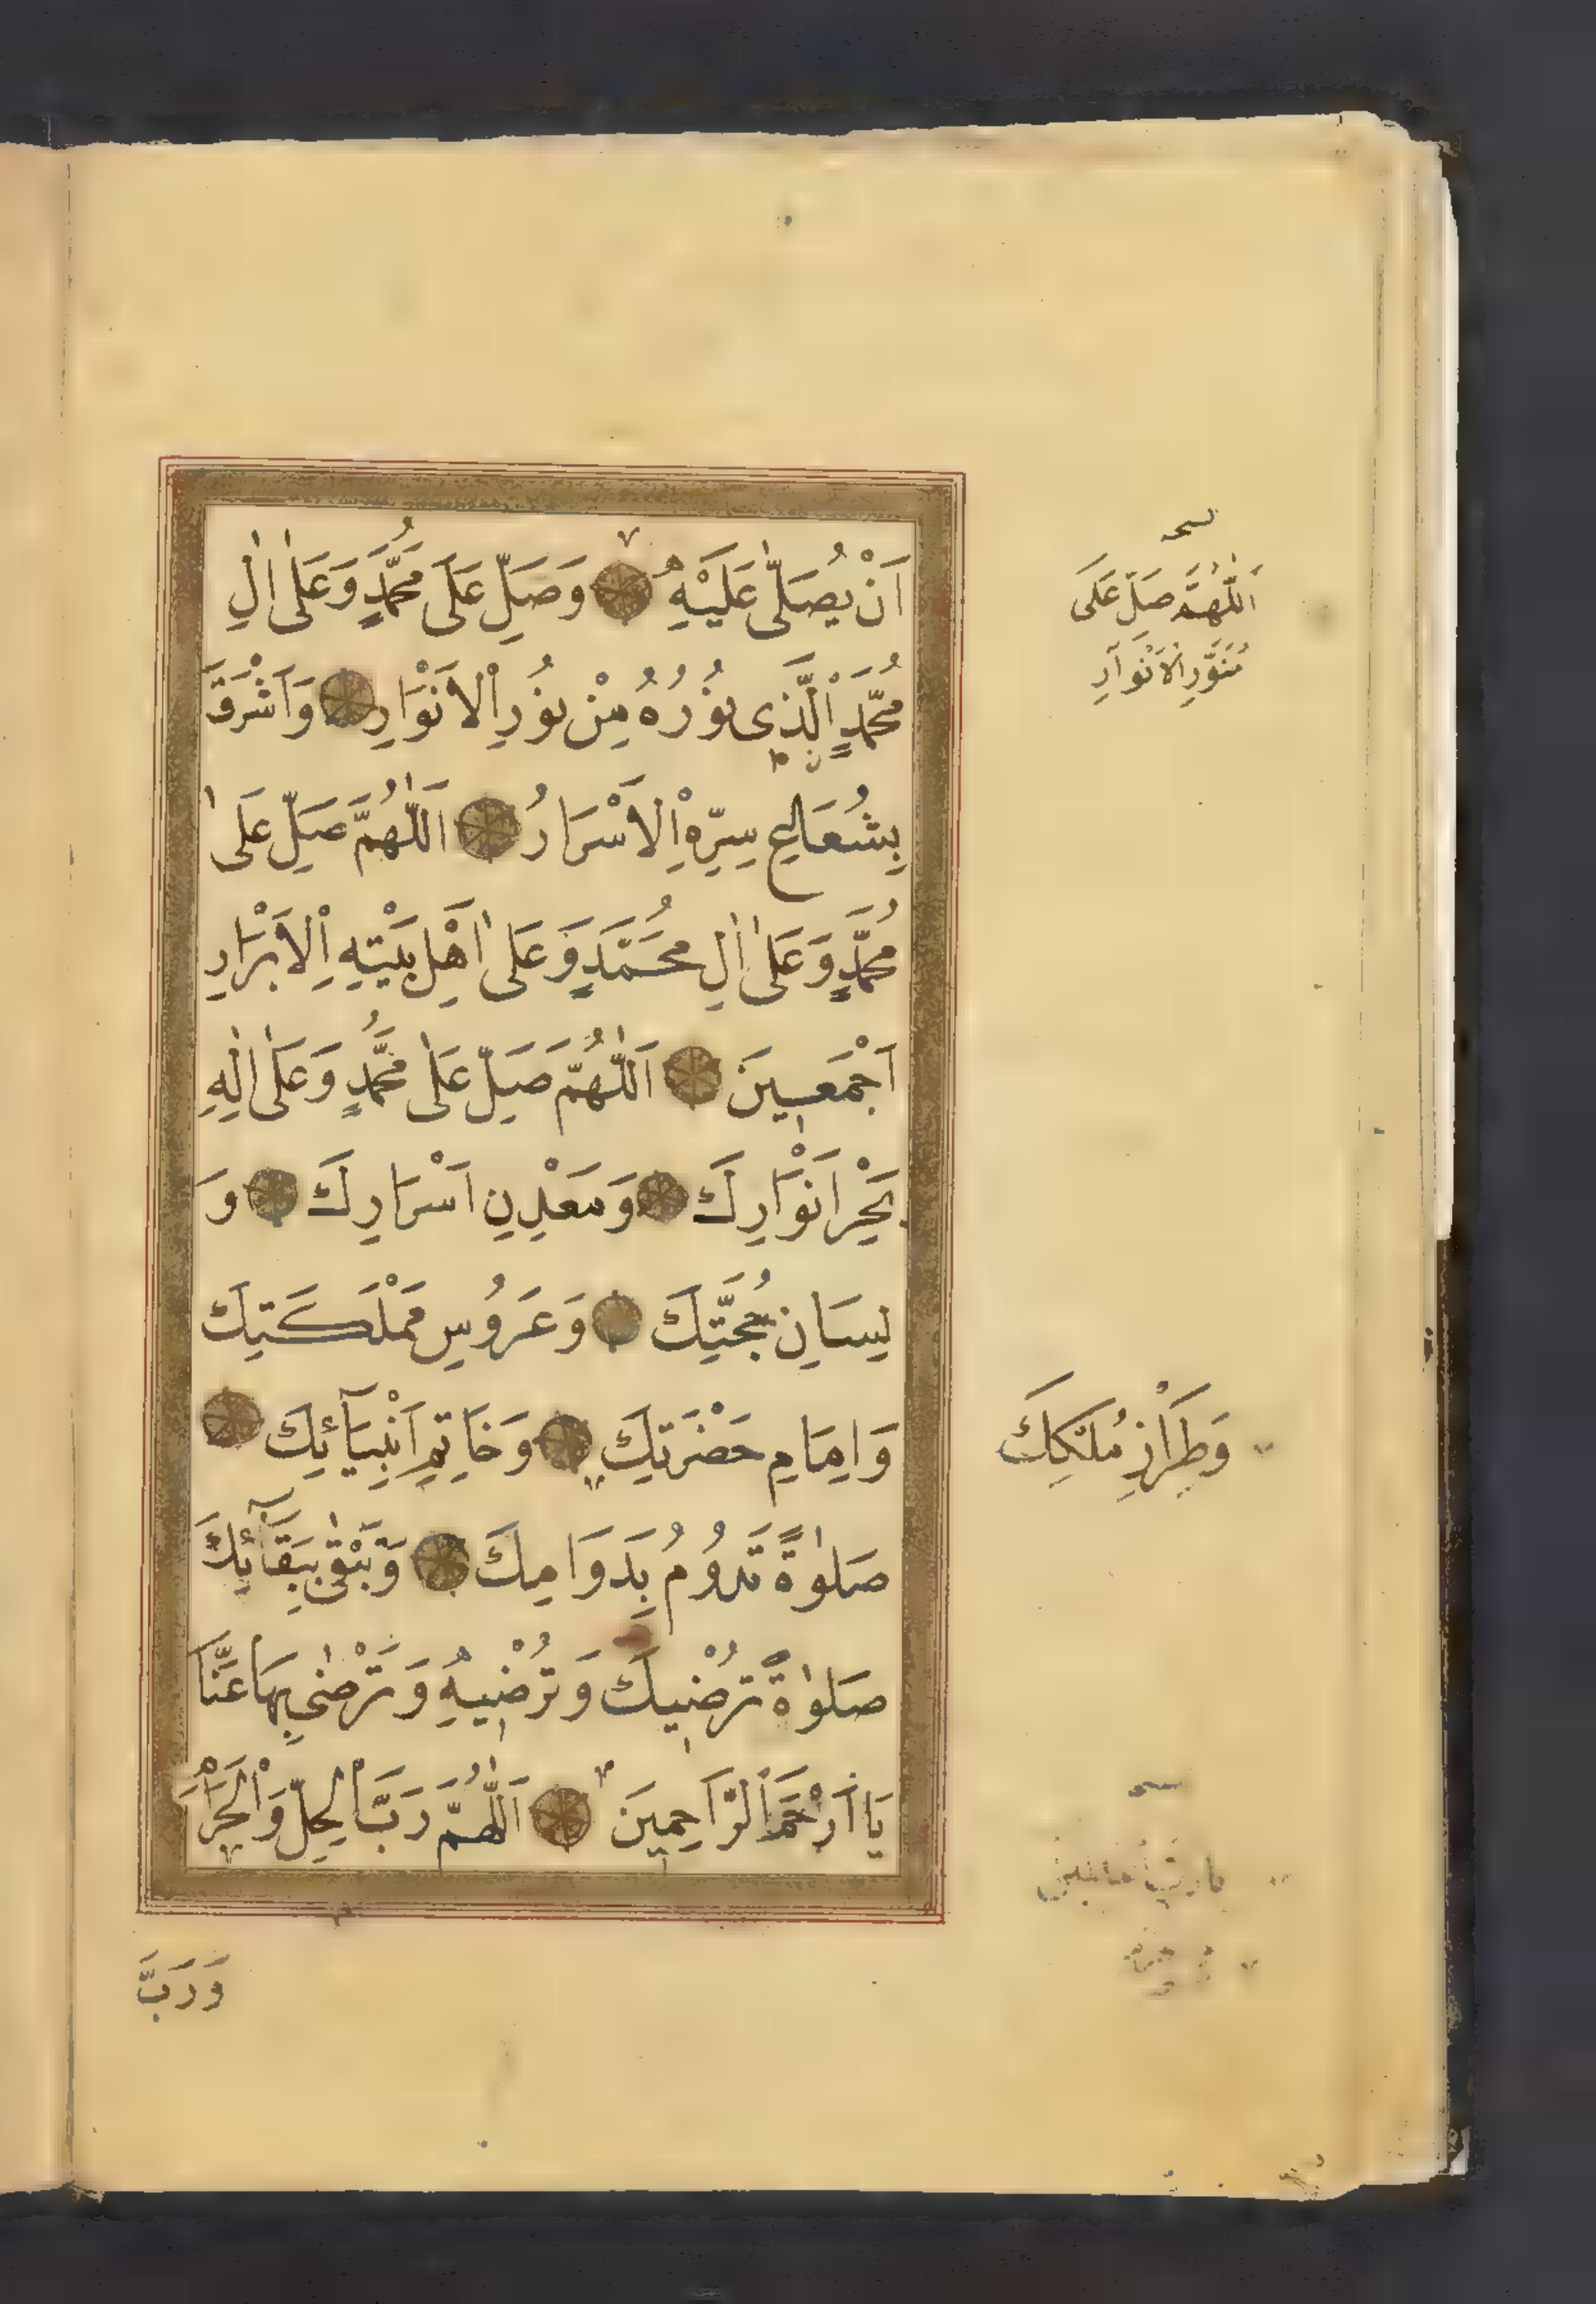 اَنْ يُصَلّٰى عَلَيْهِ وَصَلِّ عَلَى مُحَمَّدٍ وَعَلٰى اٰلِ
مُحَمَّدٍ اِلَّذِى نُوْرُهُ مِنْ نُوْرِ اْلاَنْوَارِ وَاَشْرَقَ
بِشُعَاعِ سِرِّهِ اْلاَسْرَارُ اَللّٰهُمَّ صَلِّ عَلٰى
مُحَمَّدٍ وَعَلٰى اٰلِ مُحَمَّدٍ وَعَلٰى اَهْلِ بَيْتِهِ اْلاَبْرَارِ
اَجْمَعِينَ اَللّٰهُمَّ صَلِّ عَلٰى مُحَمَّدٍ وَعَلٰى اٰلِهِ
بَحْرِ اَنْوَارِكَ وَمَعْدِنِ اَسْرَارِكَ وَ
لِسَانِ حُجَّتِكَ وَعَرُوُسِ مَمْلَكَتِكَ
وَاِمَامِ حَضْرَتِكَ وَخَاتِمِ اَنْبِيَآئِكَ
صَلٰوةً تَدُوُمُ بِدَوَامِكَ وَتَبْقٰى بِبَقَآئِكَ
صَلٰوةً تُرْضِيكَ وَتُرْضِيهِ وَتَرْضٰى بِهَا عَنَّا
يَا اَرْحَمَ الرَّاحِمِينَ اَللّٰهُمَّ رَبَّ الْحِلِّ وَالْحَرَاَمِ
وَرَبَّ
نسخه
اَللّٰهُمَّ صَلِّ عَلَى
مُنَوِّرِ اْلاَنْوَارِ
وَطِرَازِ مُلْكِكَ
نسخه
يا رب العالمين